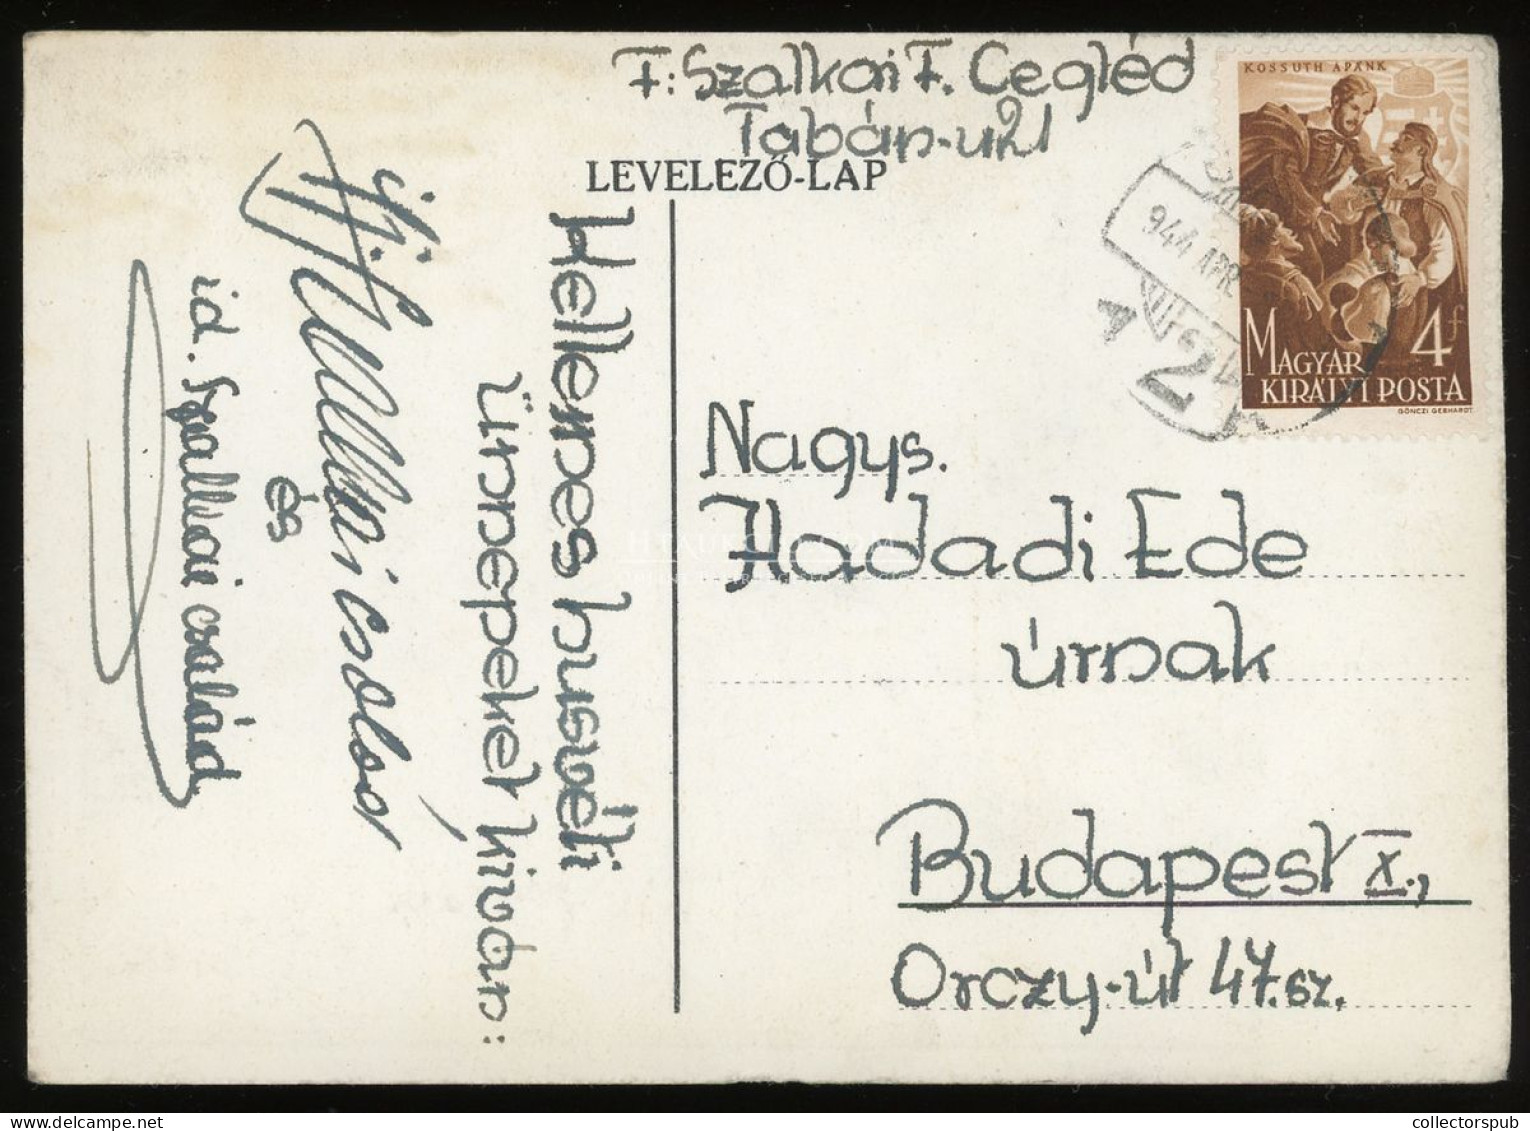 F: Szalkai F. Cegléd
Tabán-u 21
LEVELEZŐ-LAP
KOSSUTH APÁNK
MAGYAR
KIRÁLYI POSTA
4f
GÖNCZI GEBHARDT
944 APR
2
Kellemes husvéti
ünnepeket kíván:
ifj. Szalkai család
és
id. Szalkai család
Nagys.
Hadadi Ede
úrnak
Budapest X.,
Orczy-út 47. sz.
collectorspub